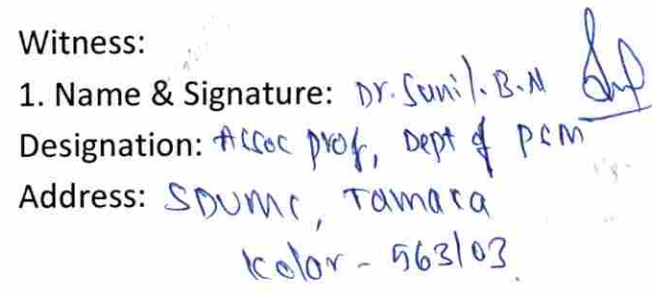 Witness:
1. Name & Signature: Dr. Sunil. B.N
Designation: Assoc prof, Dept of PSM
Address: SDUMC, Tamaka
Kolar - 563103